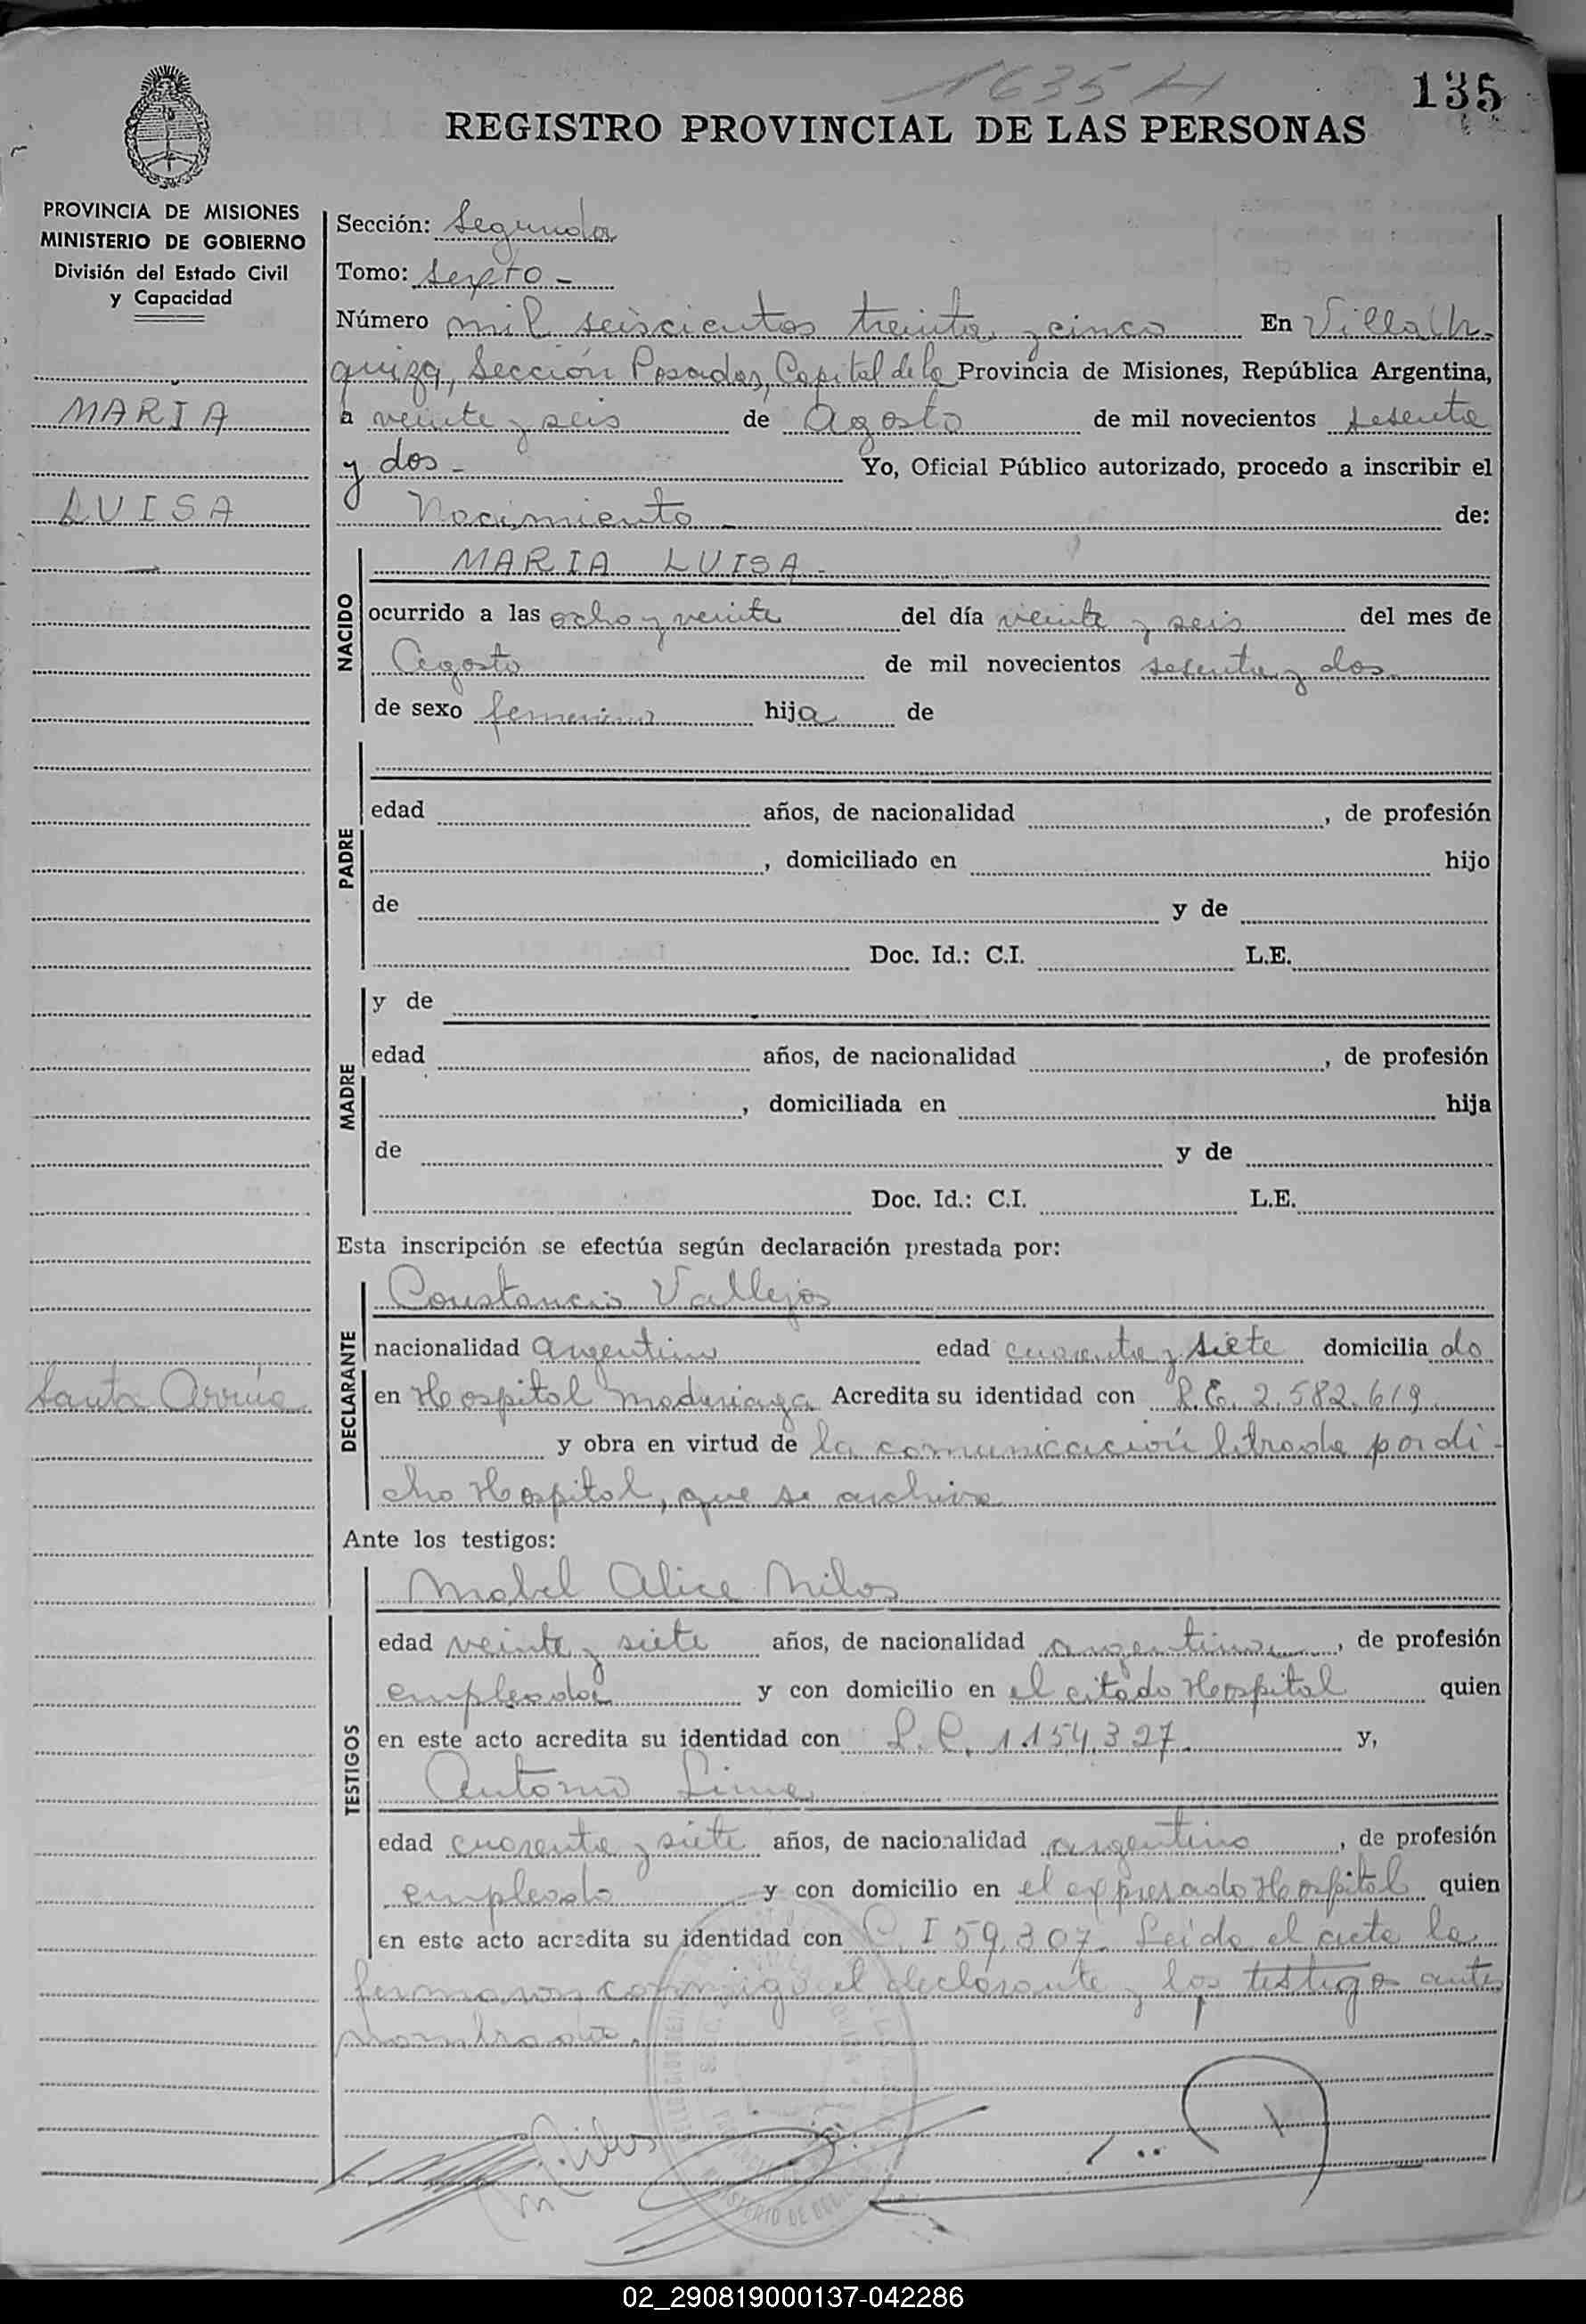 1635 H
135
REGISTRO PROVINCIAL DE LAS PERSONAS
PROVINCIA DE MISIONES
MINISTERIO DE GOBIERNO
División del Estado Civil
y Capacidad
MARIA
LUISA
Santa Arrúa
Sección: Segunda
Tomo: Sexto -
Número mil seiscientos treinta y cinco En Villa Ur-
quiza, Sección Posadas, Capital de la Provincia de Misiones, República Argentina,
a veinte y seis de Agosto de mil novecientos sesenta
y dos - Yo, Oficial Público autorizado, procedo a inscribir el
Nacimiento - de:
NACIDO
MARIA LUISA -
ocurrido a las ocho y veinte del día veinte y seis del mes de
Agosto de mil novecientos sesenta y dos
de sexo femenino hija de
PADRE
edad años, de nacionalidad , de profesión
, domiciliado en hijo
de y de
Doc. Id.: C.I. L.E.
MADRE
y de
edad años, de nacionalidad , de profesión
, domiciliada en hija
de y de
Doc. Id.: C.I. L.E.
Esta inscripción se efectúa según declaración prestada por:
DECLARANTE
Constancio Vallejos
nacionalidad argentino edad cuarenta y siete domicilia do
en Hospital Madariaga Acredita su identidad con L.E. 2.582.619
y obra en virtud de la comunicación librada por di-
cho Hospital, que se archiva
Ante los testigos:
TESTIGOS
Mabel Alice Milos
edad veinte y siete años, de nacionalidad argentina , de profesión
empleada y con domicilio en el citado Hospital quien
en este acto acredita su identidad con L.C. 1.154.327 y,
Antonio Lima
edad cuarenta y siete años, de nacionalidad argentino , de profesión
empleado y con domicilio en el expresado Hospital quien
en este acto acredita su identidad con C.I 59.307. Leída el acta la
firmaron conmigo el declarante y los testigos antes
nombrados.
02_290819000137-042286